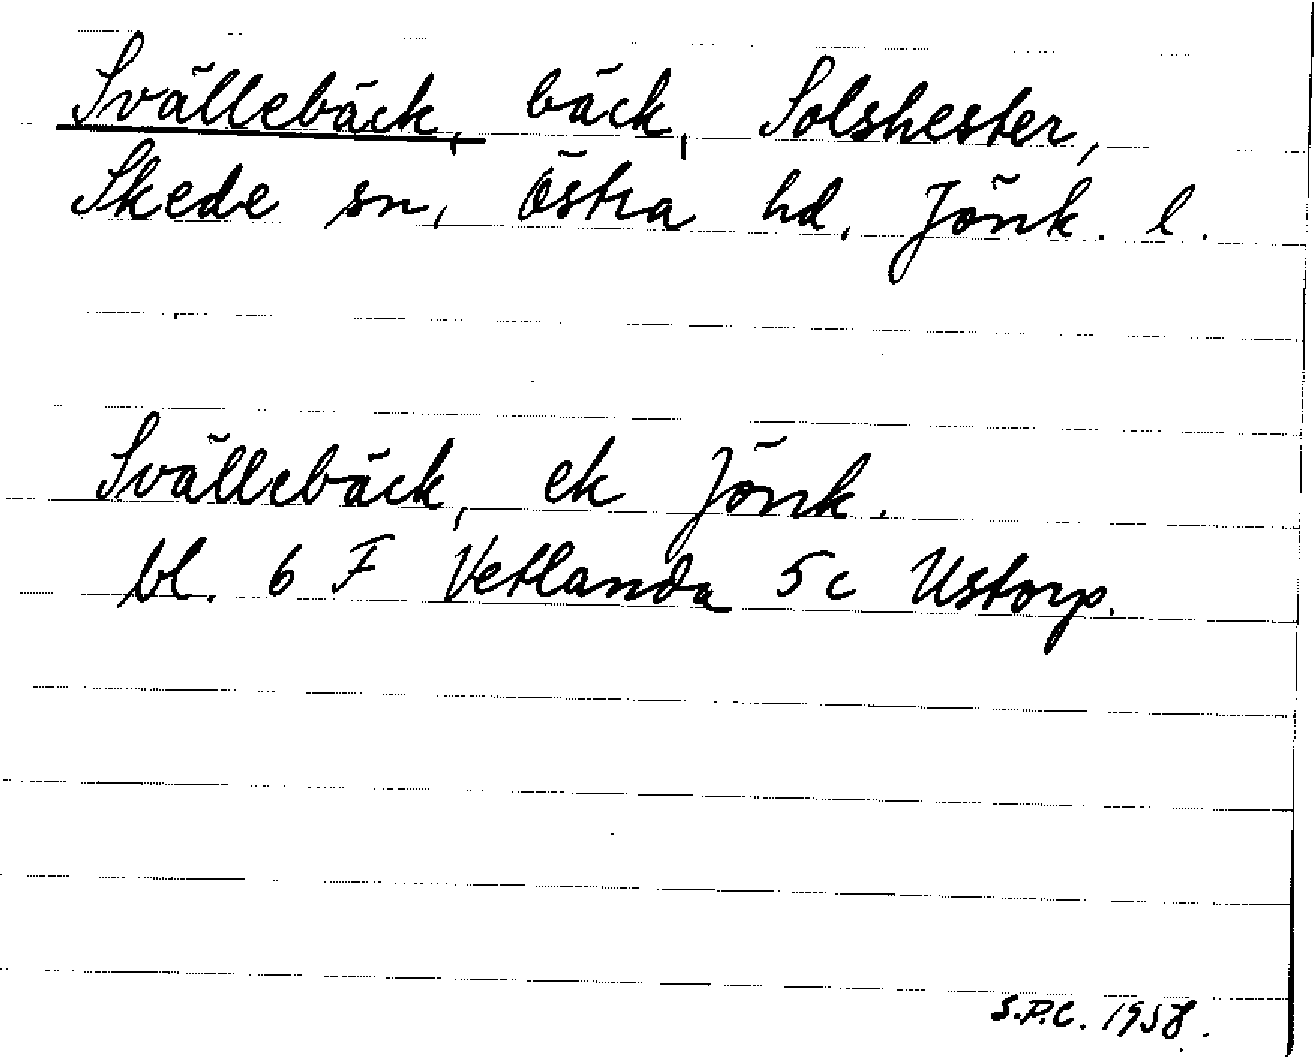 Svällebäck, bäck, Solshester,
Skede sn, Östra hd, Jönk. l.
Svällebäck, ek Jönk.
bl. 6 F Vetlanda 5c Ustorp.
S.P.C. 1958.